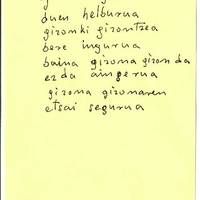 duen helburua
gizonki gizontzea
bere ingurua
baina gizona gizon da
ez da aingerua
gizona gizonaren
etsai segurua